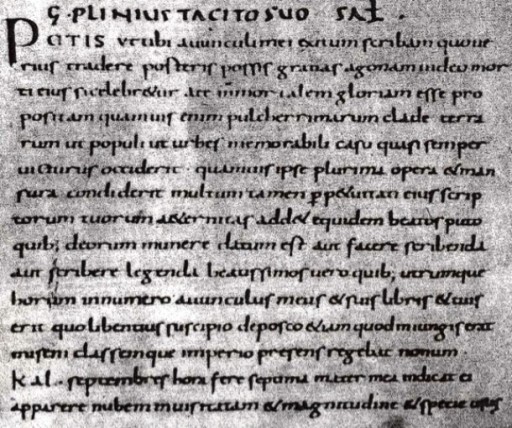 C· PLINIUS TACITO SUO SAL̄ .
PETIS ut tibi auunculi mei exitum scribam quoue
rius tradere posteris possis gratias ago nam uideo mor
ti eius si celebretur a te inmortalem gloriam esse pro
positam quamuis enim pulcherrimarum clade terra
rum ut populi ut urbes memorabili casu quasi semper
uicturus occiderit · quamuis ipse plurima opera & man
sura condiderit multum tamen ꝑp&uitati eius scrip
torum tuorum a&ernitas add& equidem beatos puto
quib; deorum munere datum est aut facere scribenda
aut scribere legenda beatissimos uero quib; utrumque
horum in numero auunculus meus & suis libris & tuis
erit quo libentius suscipio deposco &iam quod iniungis erat
miseni classemque imperio presens regebat nonum ·
kal. septembres hora fere septima mater mea indicat ei
apparere nubem inusitata & magnitudine & specie